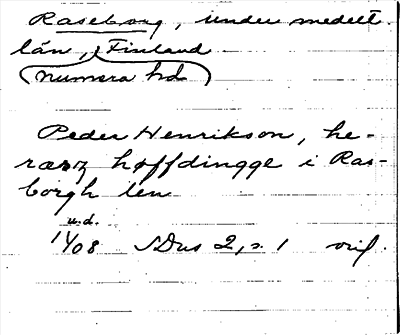 Raseborg, under medelt.
län, Finland
(numera hd)
Peder Henrikson, he-
ræsz høffdingge i Ras-
borgh len
u.d.
1408 SDns 2, s. 1 orig.